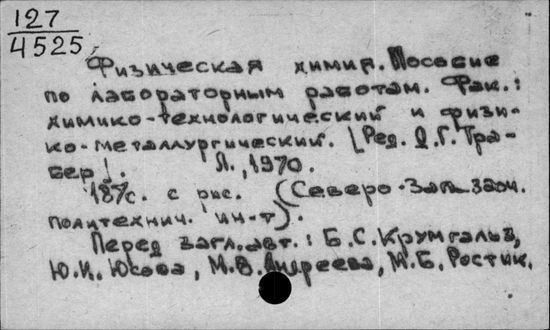 127
4525
Физическая химия. Пособие
по лабораторным работам. Фак.:
химико-технологический и физи-
ко-металлургический. [Ред. Д.Г. Тра-
бер]. Л., 1970.
187с. с рис. (Северо-Зап. заоч.
политехнич. ин-т).
Перед загл. авт.: Б.С. Крумгальз,
Ю.И. Юсова, М.В. Андреева, М.Б. Ростик.